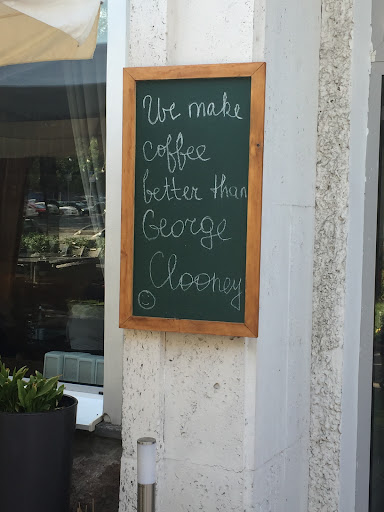 We make
coffee
better than
George
Clooney